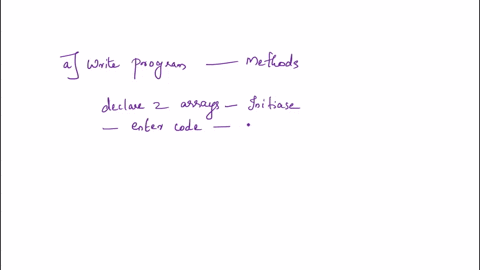 a] Write program — Methods
declare 2 arrays — Initiase
— enter code — .